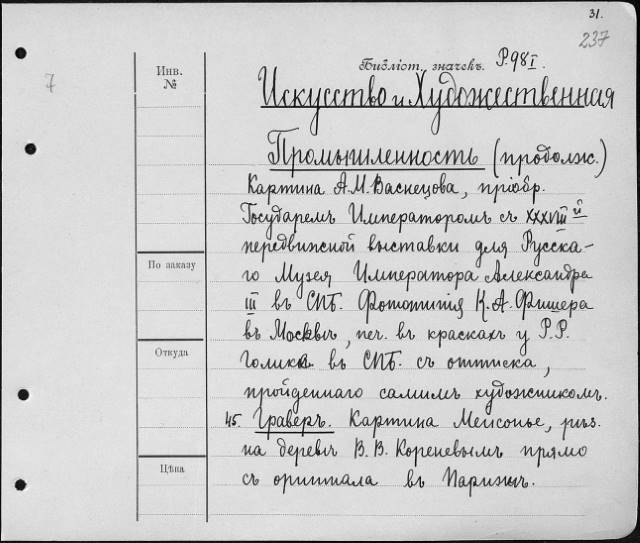 31.
237
7
Инв. №
Библіот. значекъ. P.98 I.
Искусство и Художественная
Промышленность (продолж.)
Картина А.М. Васнецова, пріобр.
Государемъ Императоромъ съ XXXVIII й
передвижной выставки для Русска-
го Музея Императора Александра
III въ СПБ. Фототипія К.А. Фишера
въ Москвѣ, печ. въ краскахъ у Р.Р.
Голике въ СПБ. съ оттиска,
пройденнаго самимъ художникомъ.
45. Граверъ. Картина Мейсонье, рѣз.
на деревѣ В.В. Кореневымъ прямо
съ оригинала въ Парижѣ.
По заказу
Откуда
Цѣна